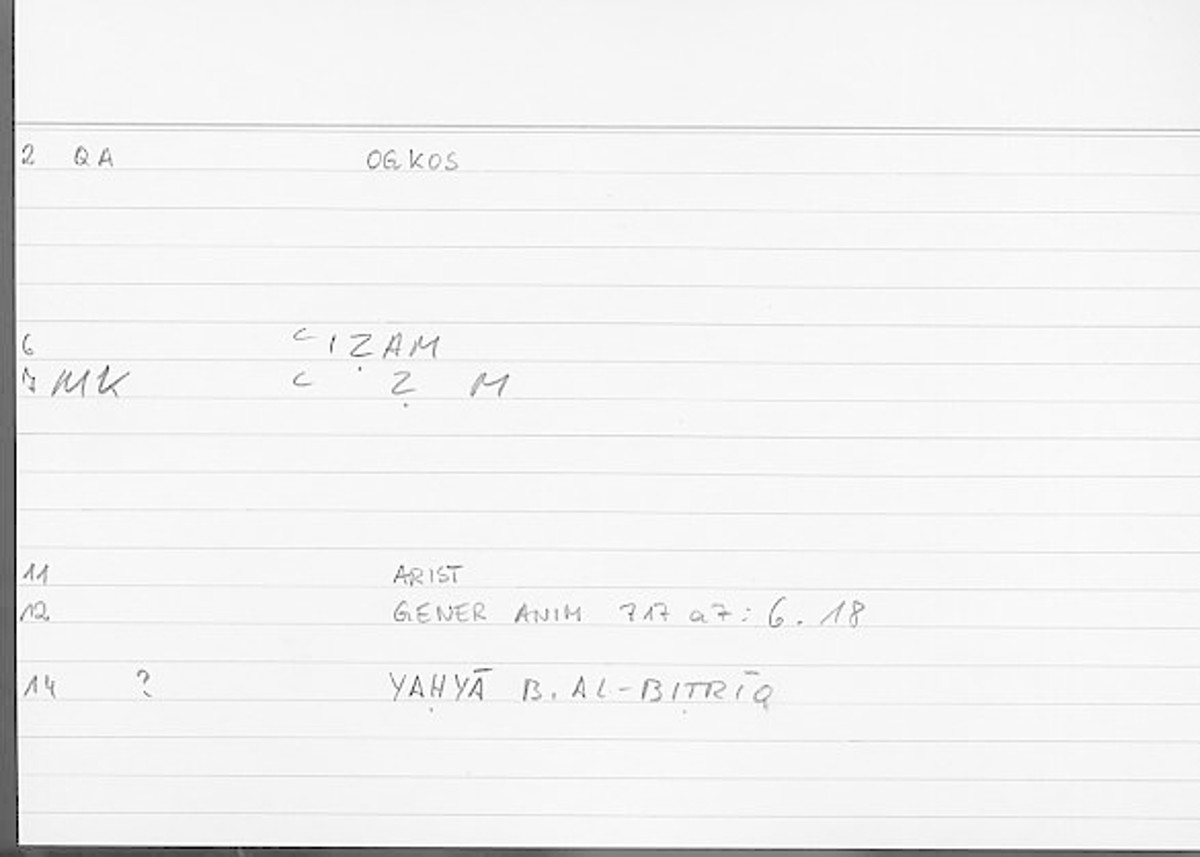 2 QA OGKOS
6 ʿIẒAM
7 MK ʿ Ẓ M
11 ARIST
12 GENER ANIM 717 a7: 6. 18
14 ? YAḤYĀ B. AL-BIṬRĪQ